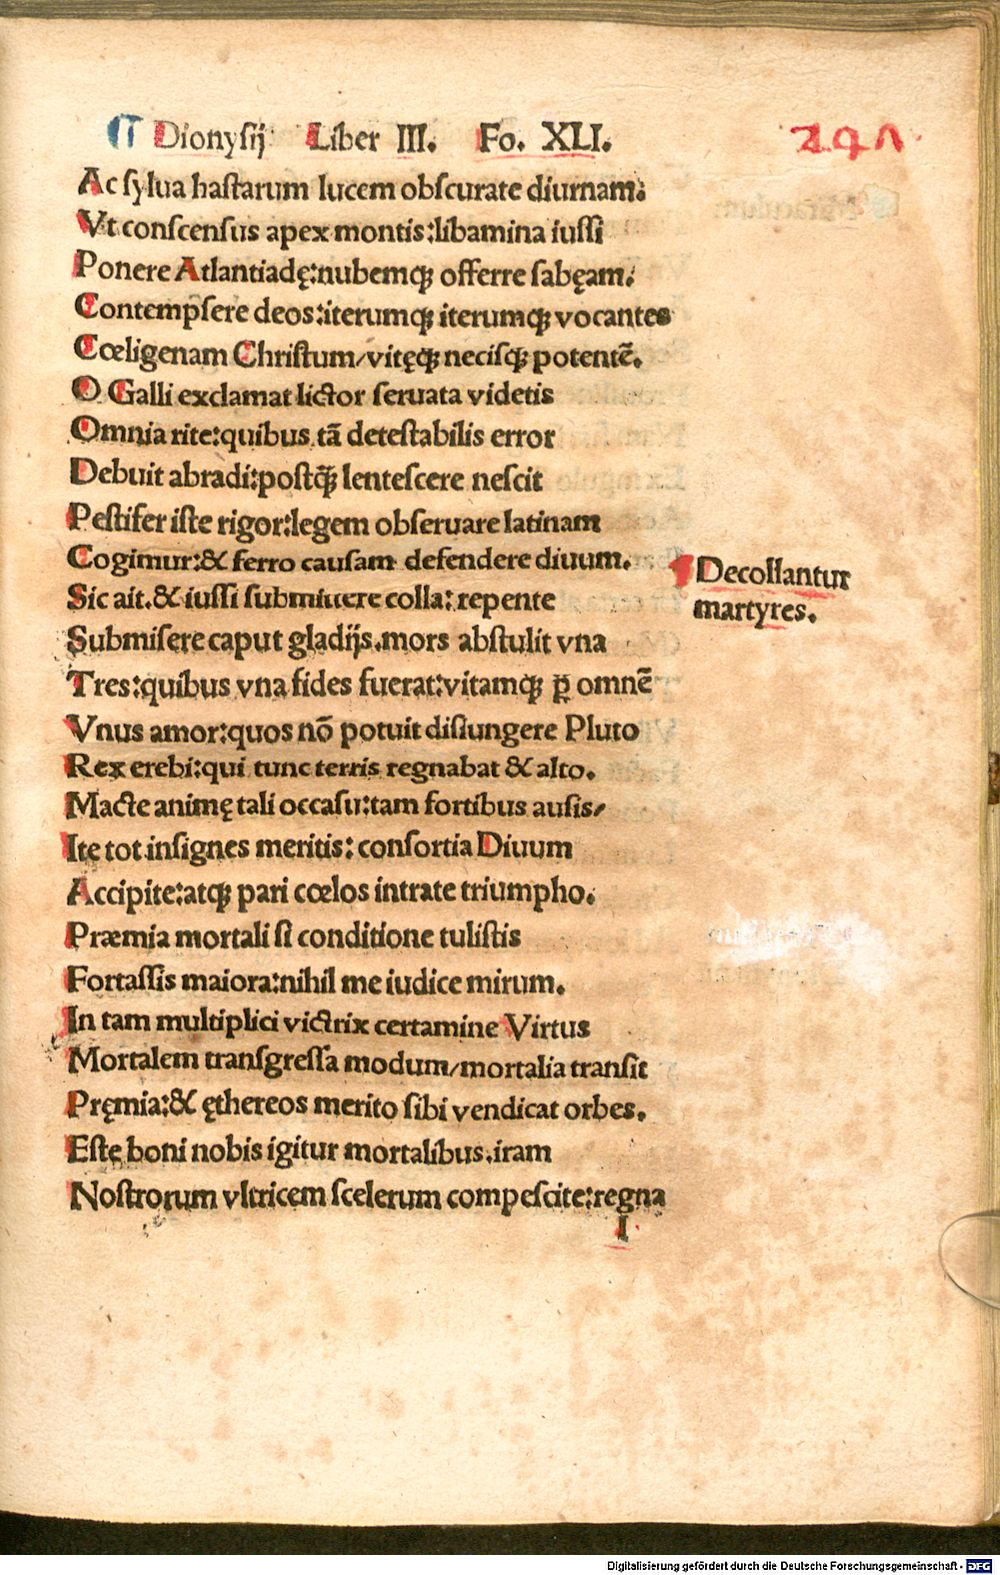 ¶ Dionysij Liber III. Fo. XLI.
241
Ac sylua hastarum lucem obscurate diurnam:
Vt conscensus apex montis:libamina iussi
Ponere Atlantiadę:nubemqꝫ offerre sabęam:
Contempsere deos:iterumqꝫ iterumqꝫ vocantes
Cœligenam Christum/vitęqꝫ necisqꝫ potentē.
O Galli exclamat lictor seruata videtis
Omnia rite:quibus tā detestabilis error
Debuit abradi:postqꝫ̄ lentescere nescit
Pestifer iste rigor:legem obseruare latinam
Cogimur:& ferro causam defendere diuum.
Sic ait.& iussi submittere colla: repente
Submisere caput gladijs.mors abstulit vna
Tres:quibus vna fides fuerat:vitamqꝫ ꝑ omnē
Vnus amor:quos nō potuit disiungere Pluto
Rex erebi:qui tunc terris regnabat & alto.
Macte animę tali occasu:tam fortibus ausis/
Ite tot insignes meritis: consortia Diuum
Accipite:atqꝫ pari cœlos intrate triumpho.
Præmia mortali si conditione tulistis
Fortassis maiora:nihil me iudice mirum.
In tam multiplici victrix certamine Virtus
Mortalem transgressa modum/mortalia transit
Pręmia:& ęthereos merito sibi vendicat orbes.
Este boni nobis igitur mortalibus.iram
Nostrorum vltricem scelerum compescite:regna
I
¶ Decollantur
martyres.
Digitalisierung gefördert durch die Deutsche Forschungsgemeinschaft - DFG